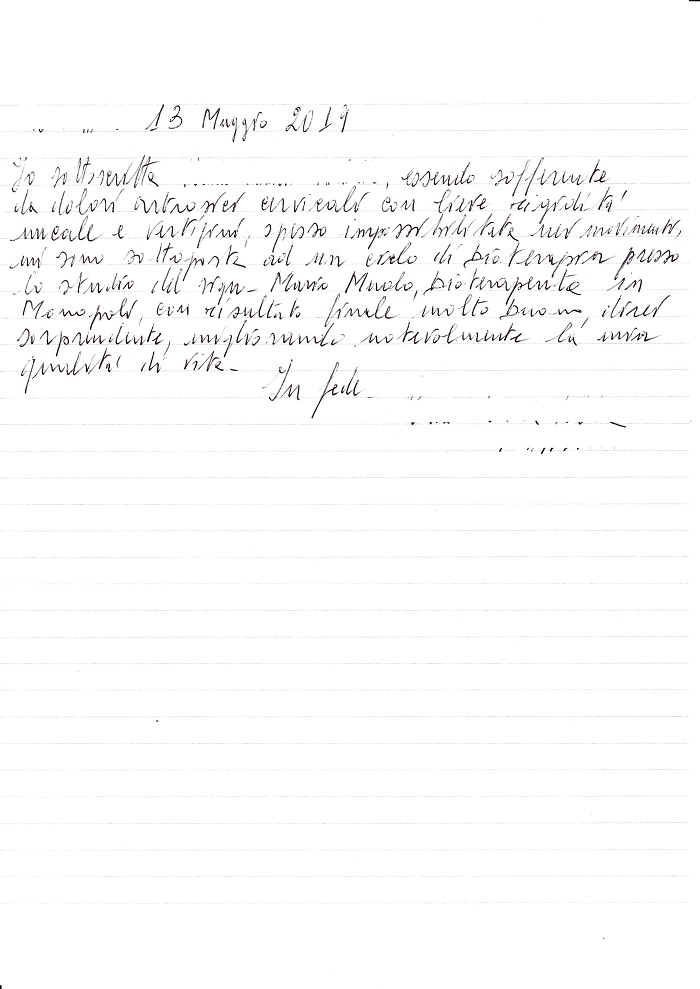 13 Maggio 2019
Io sottoscritta , essendo sofferente
da dolori artrosici cervicali con lieve rigidità
nucale e vertigini, spesso impossibilitata nei movimenti,
mi sono sottoposta ad un ciclo di bioterapia presso
lo studio del sign- Mario Muolo, bioterapeuta in
Monopoli, con risultato finale molto buono, direi
sorprendente, migliorando notevolmente la mia
qualità di vita-
In fede-